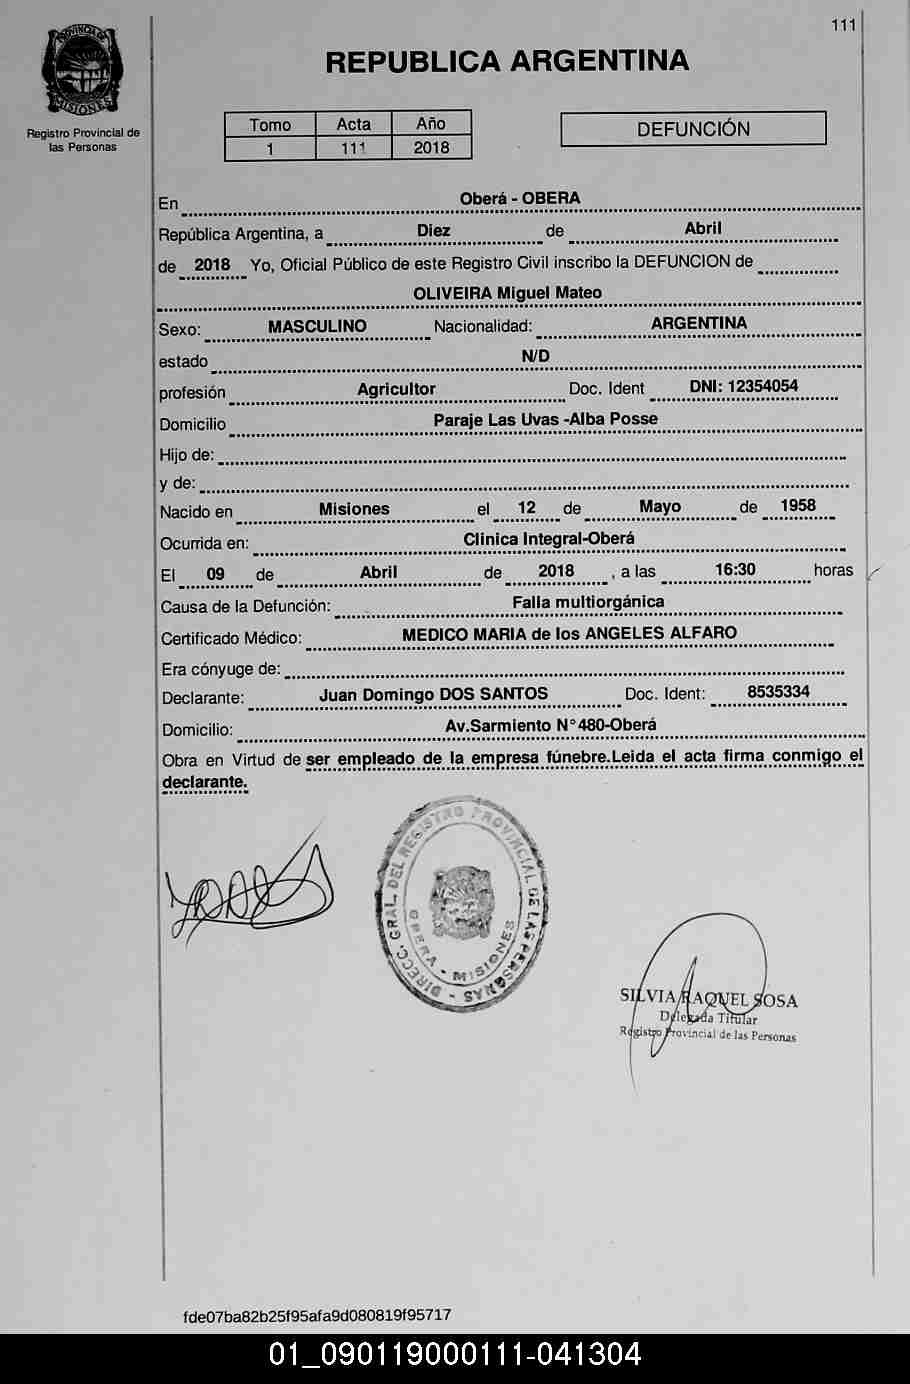 111
PROVINCIA DE
MISIONES
Registro Provincial de
las Personas
REPUBLICA ARGENTINA
Tomo Acta Año
1 111 2018
DEFUNCIÓN
En Oberá - OBERA
República Argentina, a Diez de Abril
de 2018 Yo, Oficial Público de este Registro Civil inscribo la DEFUNCION de
OLIVEIRA Miguel Mateo
Sexo: MASCULINO Nacionalidad: ARGENTINA
estado N/D
profesión Agricultor Doc. Ident DNI: 12354054
Domicilio Paraje Las Uvas -Alba Posse
Hijo de:
y de:
Nacido en Misiones el 12 de Mayo de 1958
Ocurrida en: Clinica Integral-Oberá
El 09 de Abril de 2018 , a las 16:30 horas
Causa de la Defunción: Falla multiorgánica
Certificado Médico: MEDICO MARIA de los ANGELES ALFARO
Era cónyuge de:
Declarante: Juan Domingo DOS SANTOS Doc. Ident: 8535334
Domicilio: Av.Sarmiento N°480-Oberá
Obra en Virtud de ser empleado de la empresa fúnebre.Leida el acta firma conmigo el
declarante.
DIRECC. GRAL. DEL REGISTRO PROVINCIAL DE LAS PERSONAS -
OBERA - MISIONES
SILVIA RAQUEL SOSA
Delegada Titular
Registro Provincial de las Personas
fde07ba82b25f95afa9d080819f95717
01_090119000111-041304